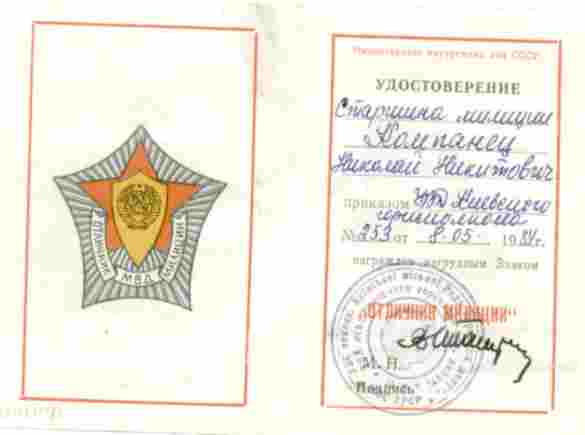 ОТЛИЧНИК
МВД
МИЛИЦИИ
Министерство внутренних дел СССР
УДОСТОВЕРЕНИЕ
Старшина милиции
Компанец
Николай Никитович
приказом УВД Киевского
горисполкома
№ 253 от 8-05 1984г.
награжден нагрудным Знаком
"ОТЛИЧНИК МИЛИЦИИ"
М. П.
Подпись